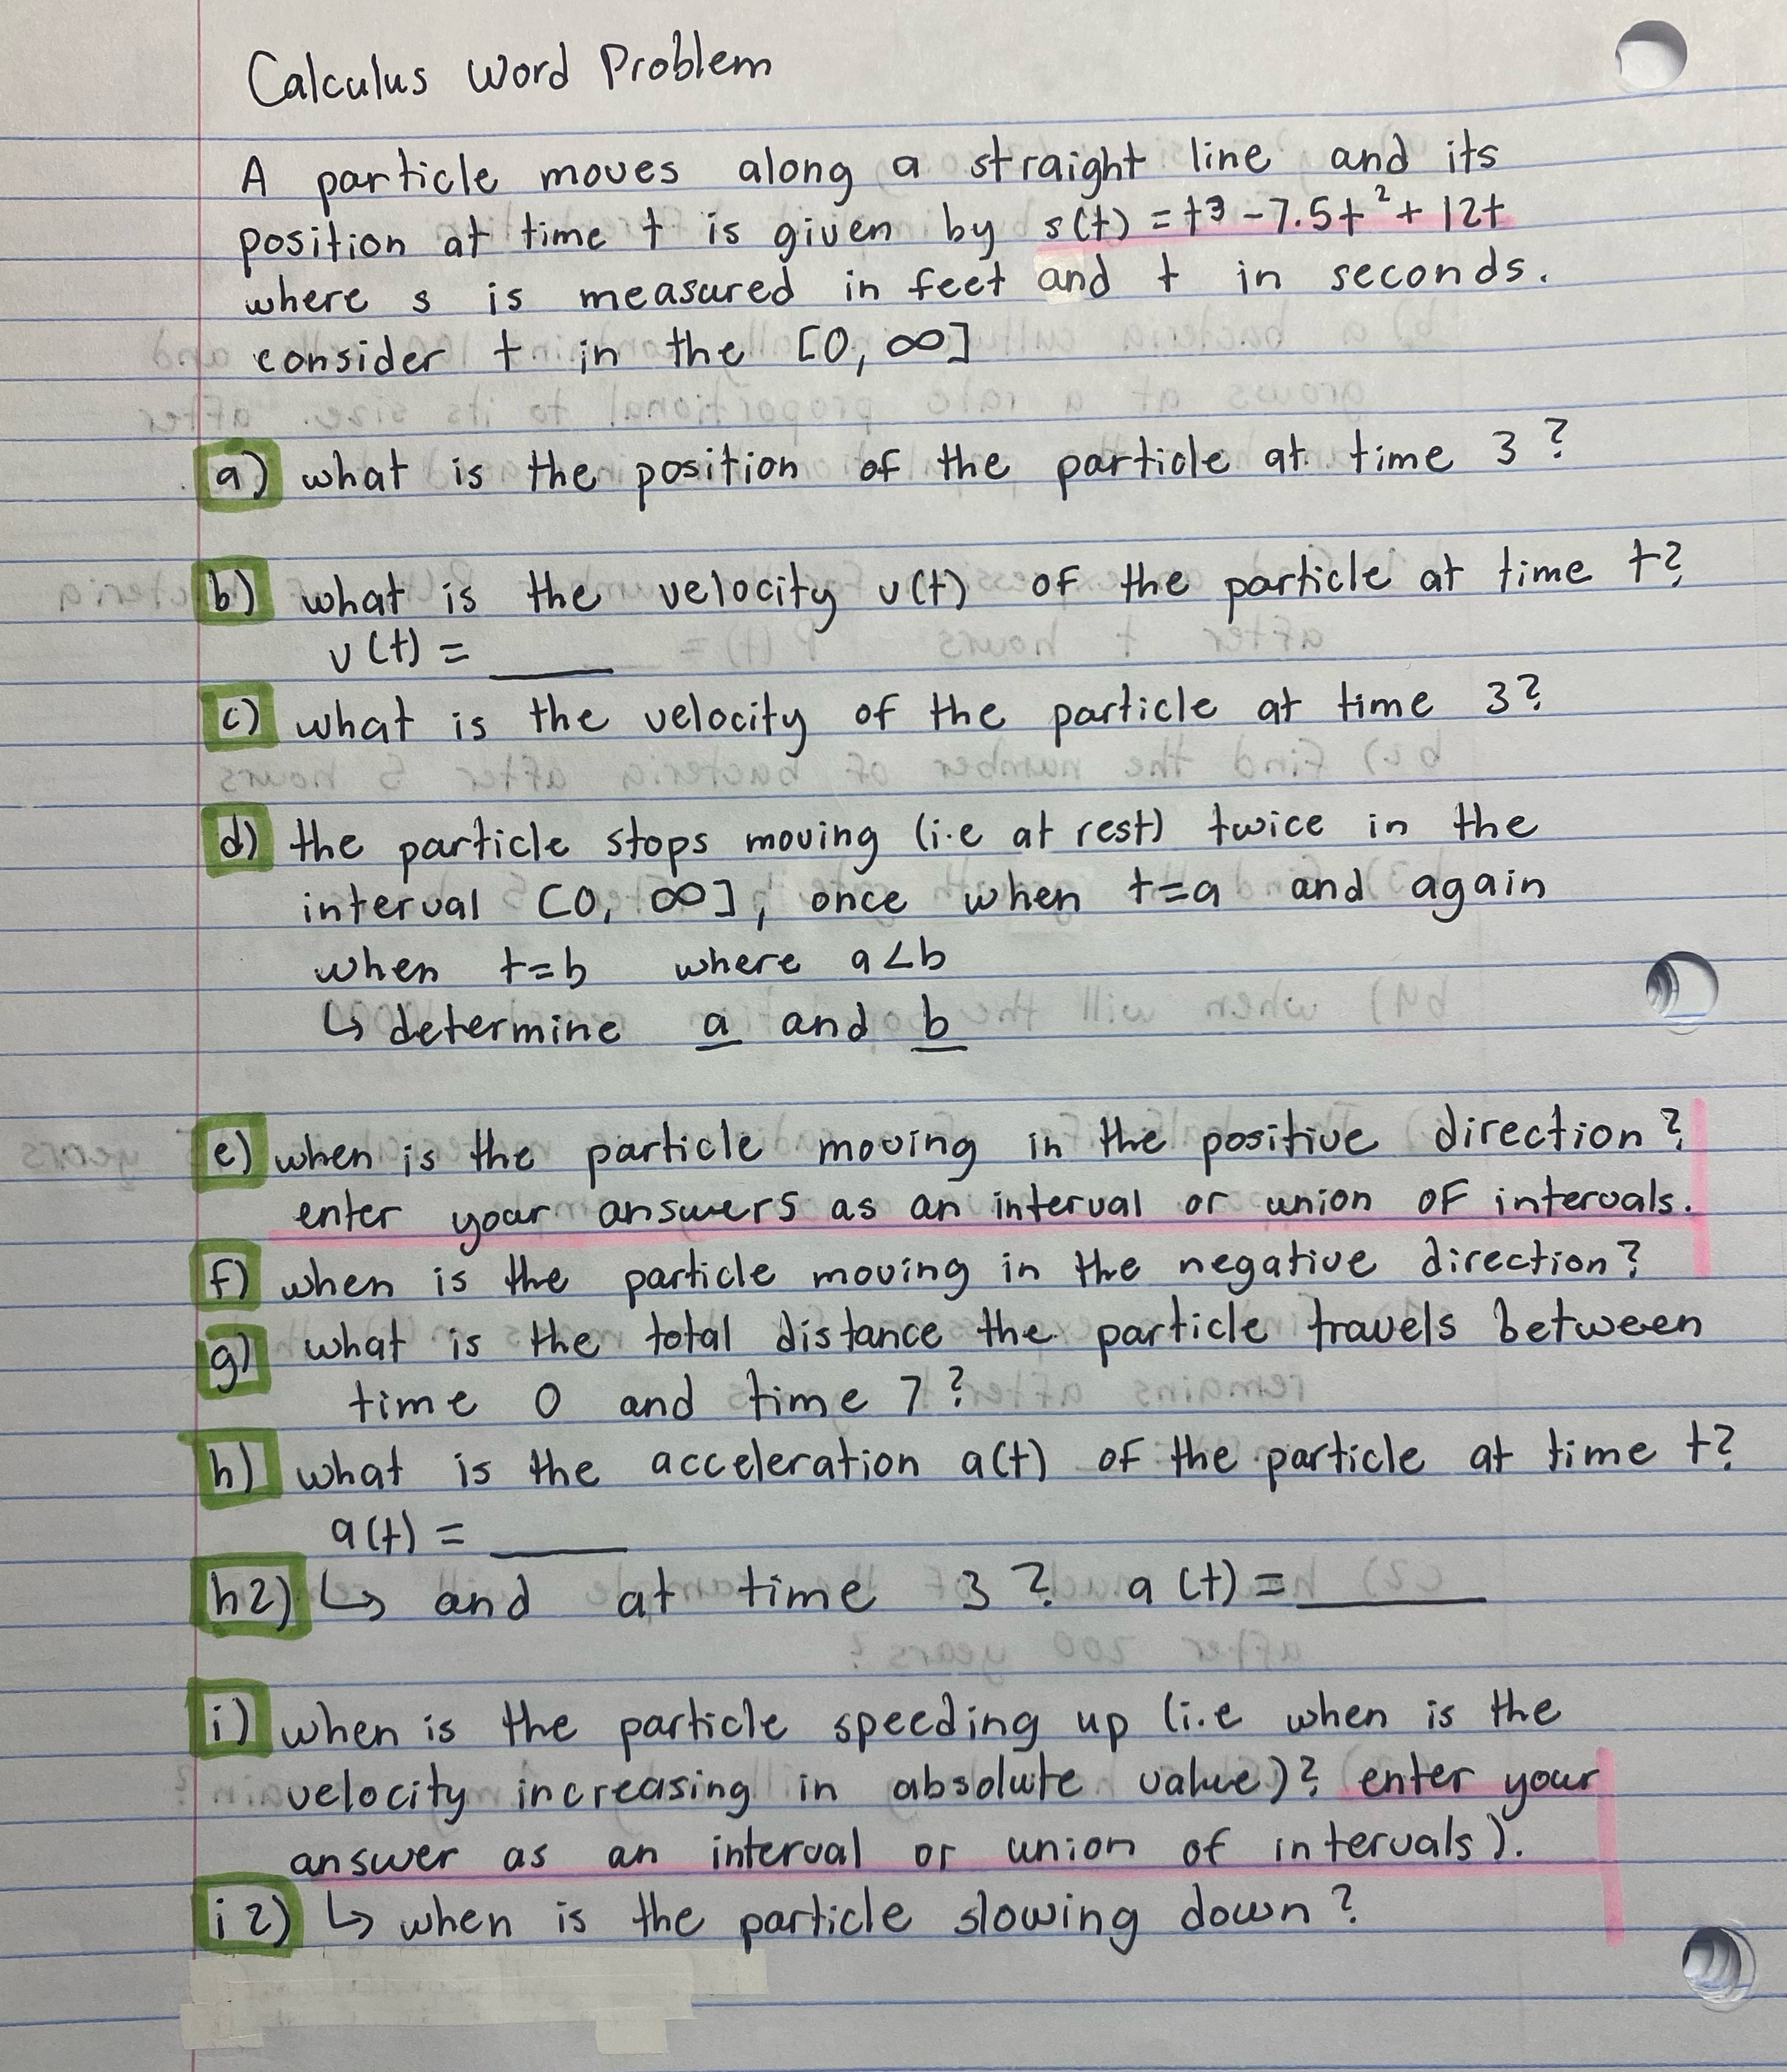 Calculus Word Problem
A particle moves along a straight line and its
position at time t is given by s(t) = t³ - 7.5t² + 12t
where s is measured in feet and t in seconds.
consider t in the [0, ∞]
a) what is the position of the particle at time 3?
b) what is the velocity v(t) of the particle at time t?
v(t) = ____
c) what is the velocity of the particle at time 3?
d) the particle stops moving (i.e at rest) twice in the
interval [0, ∞], once when t=a and again
when t=b where a<b
↳ determine a and b
e) when is the particle moving in the positive direction?
enter your answers as an interval or union of intervals.
f) when is the particle moving in the negative direction?
g) what is the total distance the particle travels between
time 0 and time 7?
h) what is the acceleration a(t) of the particle at time t?
a(t) = ____
h2) ↳ and at time 3? a(t) = ____
i) when is the particle speeding up (i.e when is the
velocity increasing in absolute value)? enter your
answer as an interval or union of intervals).
i2) ↳ when is the particle slowing down?